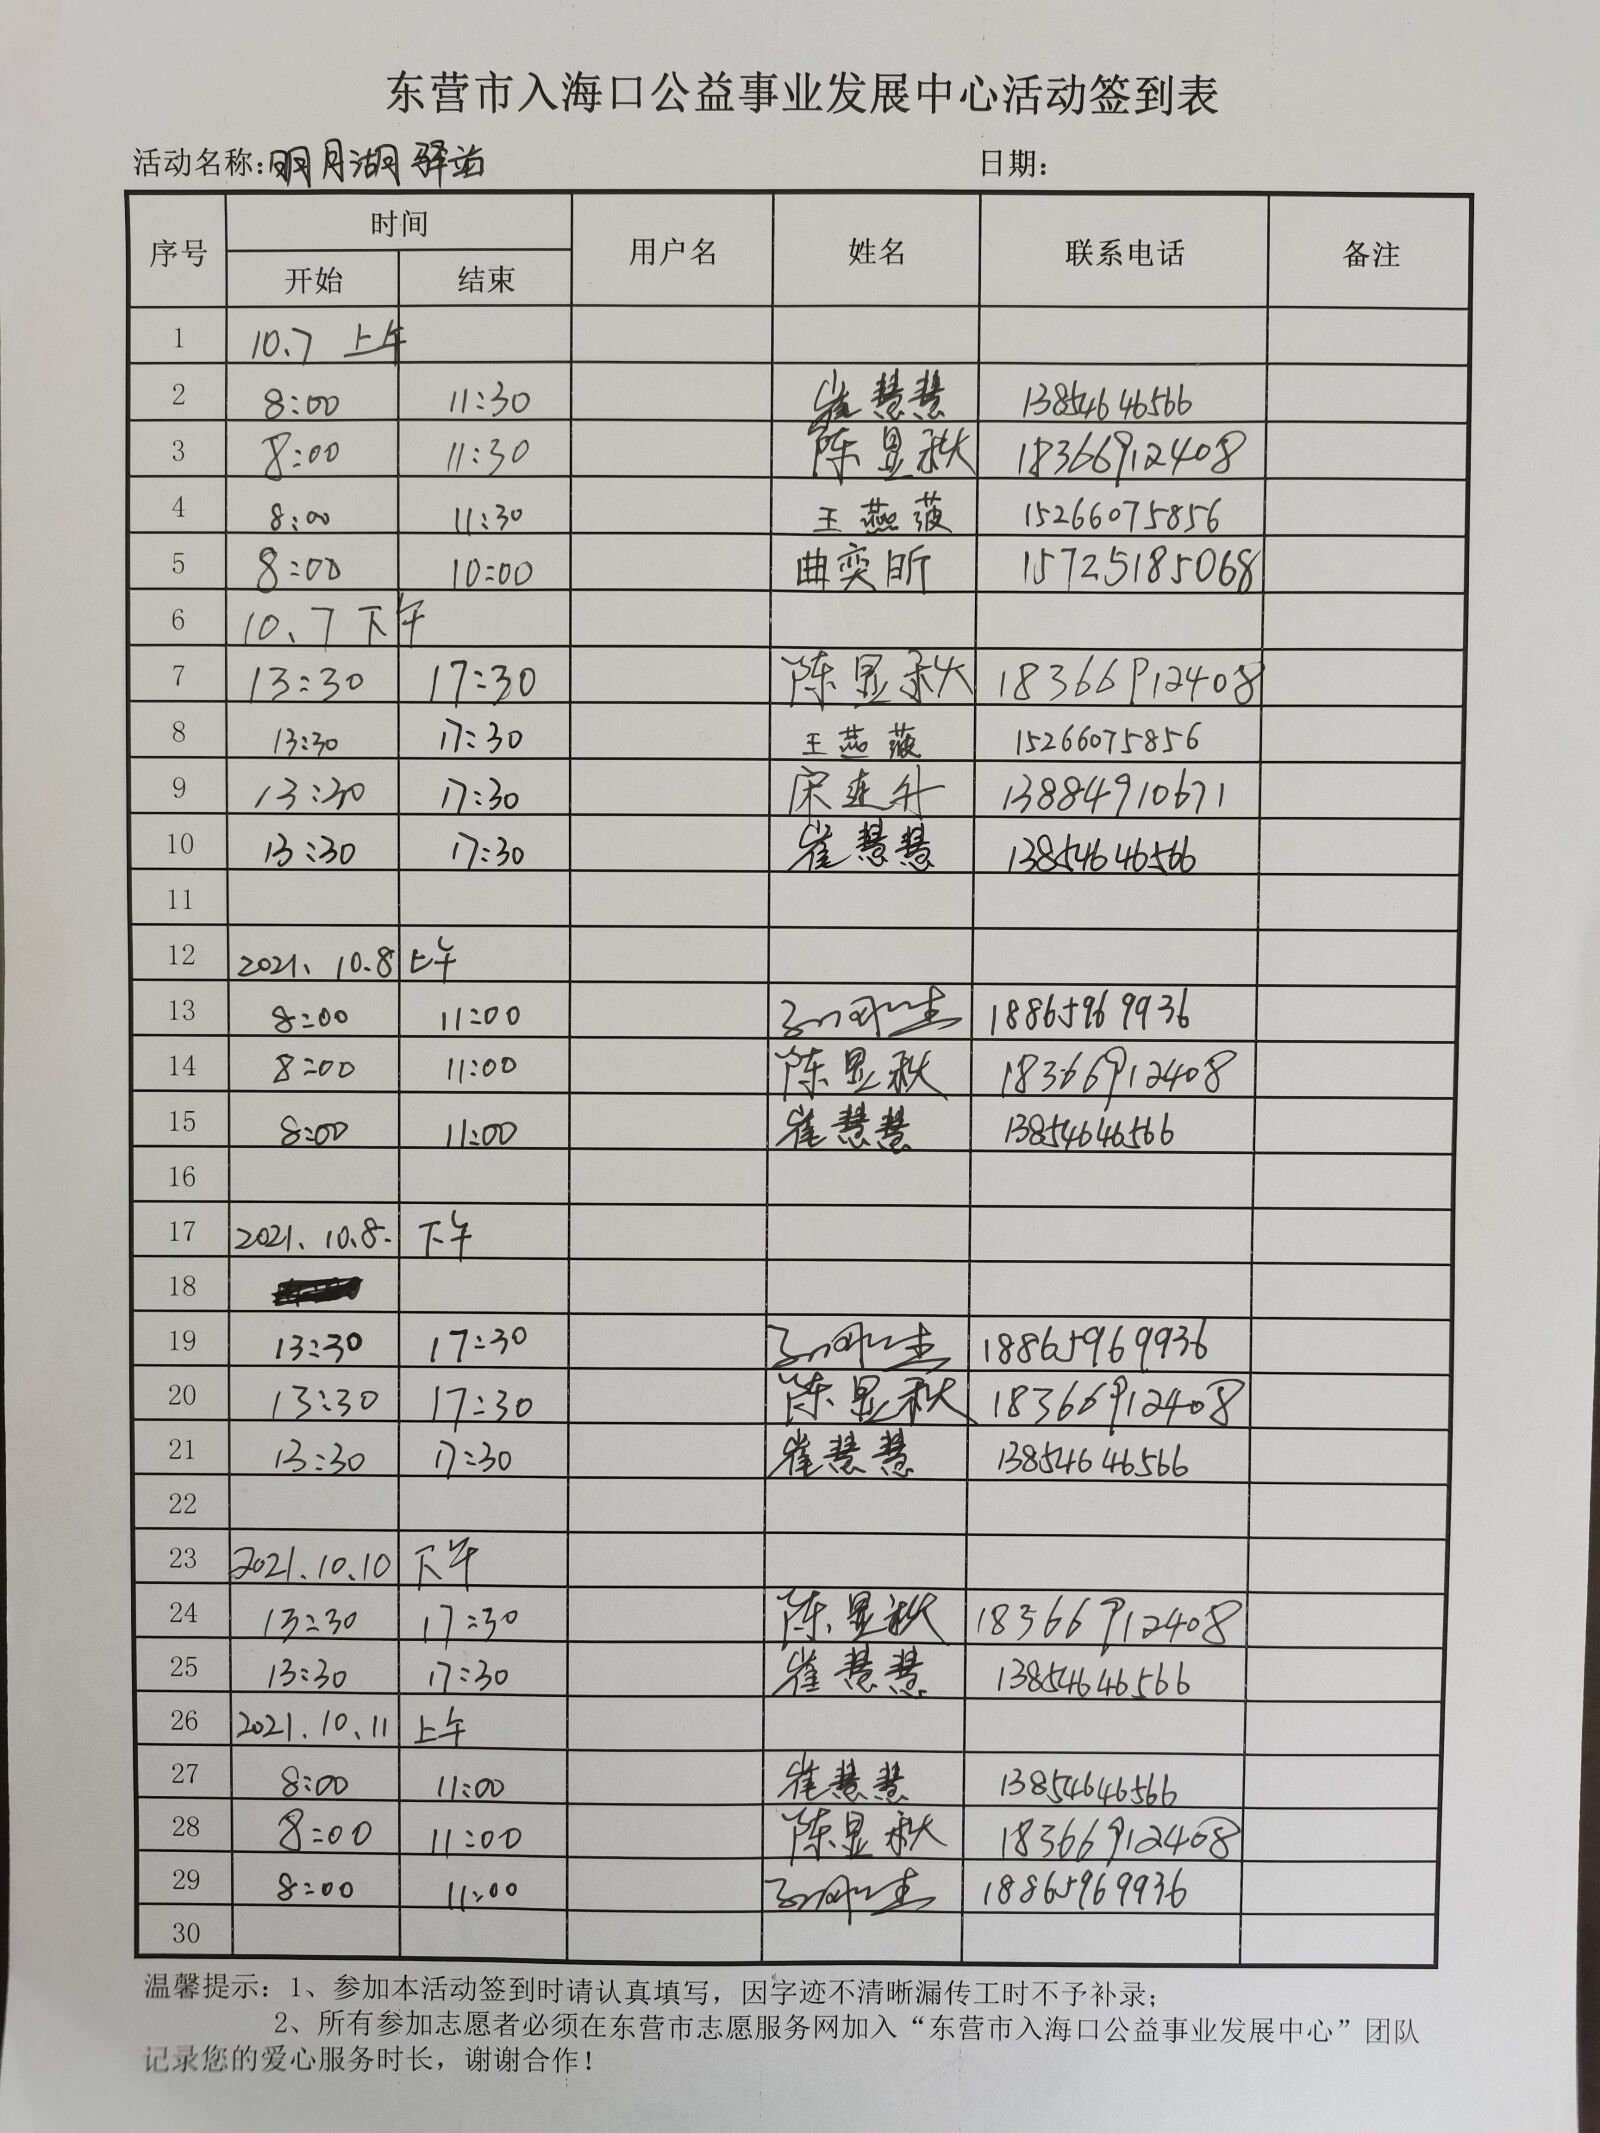 东营市入海口公益事业发展中心活动签到表
活动名称：明月湖驿站 日期：
序号 时间 用户名 姓名 联系电话 备注
开始 结束
1 10.7 上午
2 8:00 11:30 崔慧慧 13854646566
3 8:00 11:30 陈显秋 18366912408
4 8:00 11:30 王燕菠 15266075856
5 8:00 10:00 曲奕昕 15725185068
6 10、7 下午
7 13:30 17:30 陈显秋 18366912408
8 13:30 17:30 王燕菠 15266075856
9 13:30 17:30 宋连升 13884910671
10 13:30 17:30 崔慧慧 13854646566
11
12 2021、10.8 上午
13 8:00 11:00 18865969936
14 8:00 11:00 陈显秋 18366912408
15 8:00 11:00 崔慧慧 13854646566
16
17 2021、10、8. 下午
18
19 13:30 17:30 18865969936
20 13:30 17:30 陈显秋 18366912408
21 13:30 17:30 崔慧慧 13854646566
22
23 2021.10、10 下午
24 13:30 17:30 陈显秋 18366912408
25 13:30 17:30 崔慧慧 13854646566
26 2021.10、11 上午
27 8:00 11:00 崔慧慧 13854646566
28 8:00 11:00 陈显秋 18366912408
29 8:00 11:00 18865969936
30
温馨提示：1、参加本活动签到时请认真填写，因字迹不清晰漏传工时不予补录；
2、所有参加志愿者必须在东营市志愿服务网加入“东营市入海口公益事业发展中心”团队
记录您的爱心服务时长，谢谢合作！